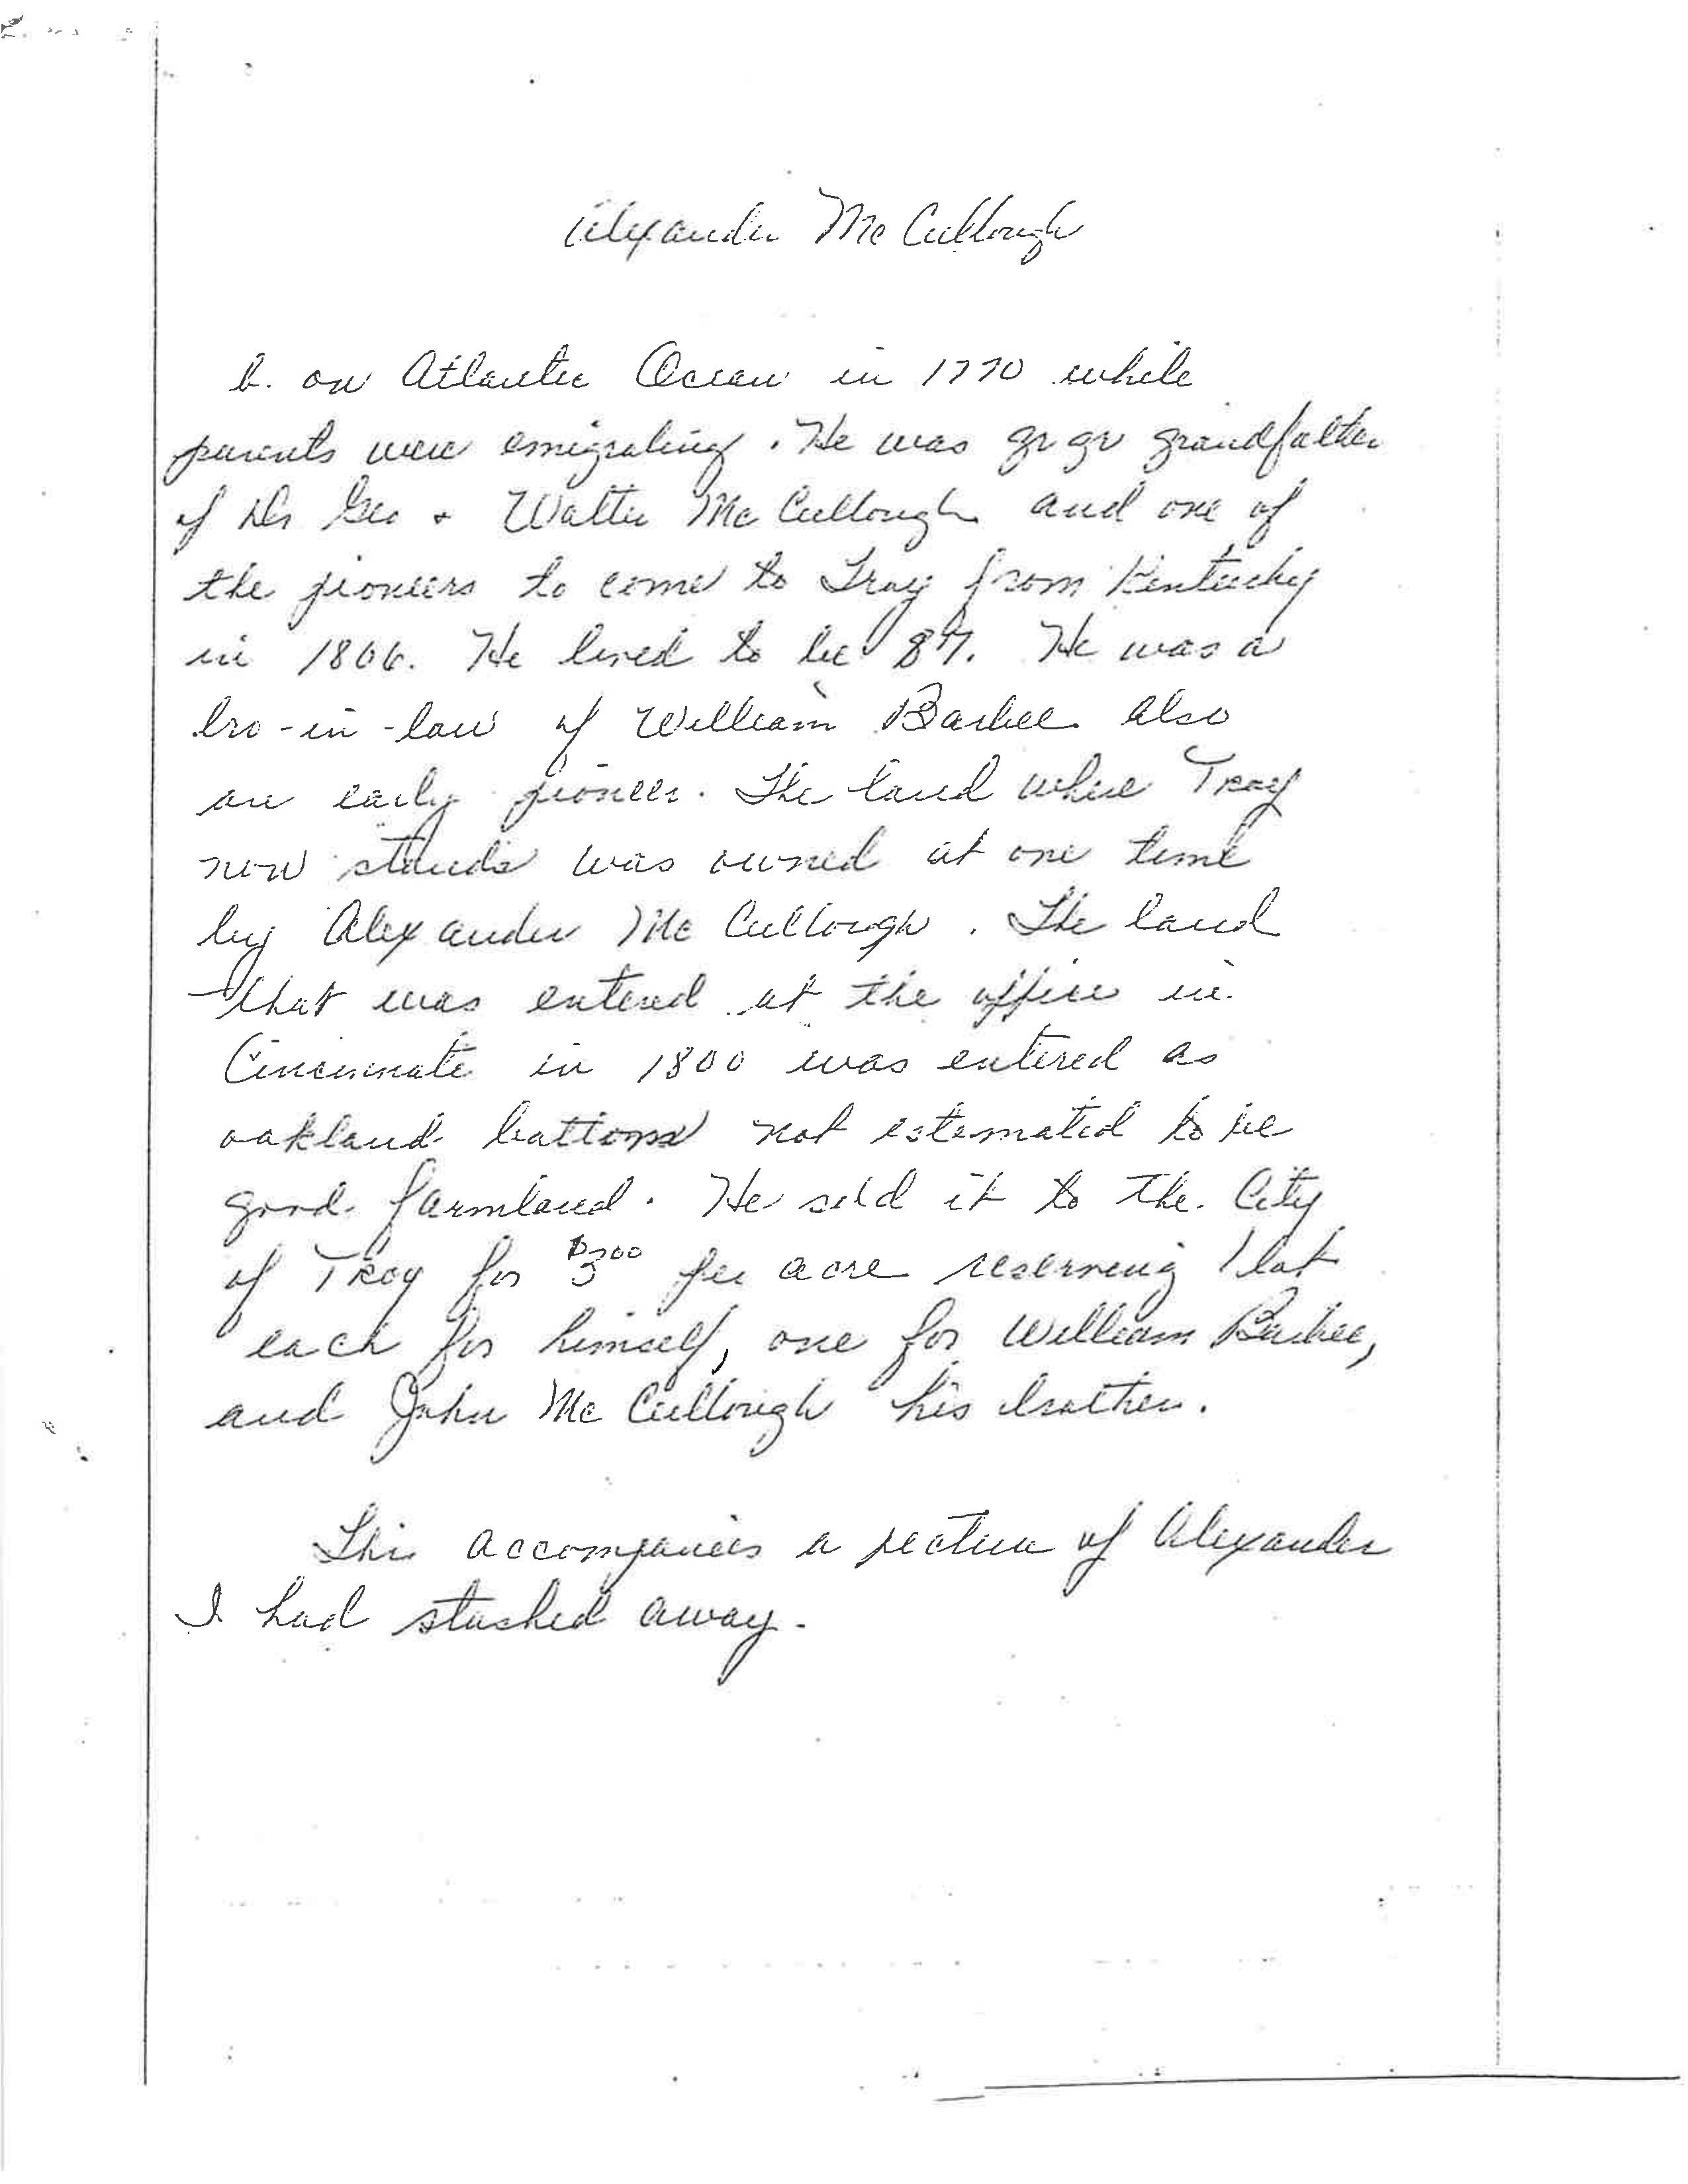 Alexander McCullough
b. on Atlantic Ocean in 1770 while
parents were emigrating. He was gr gr grandfather
of Drs Geo & Walter McCullough and one of
the pioneers to come to Troy from Kentucky
in 1806. He lived to be 87. He was a
bro-in-law of William Barbee also
an early pioneer. The land where Troy
now stands was owned at one time
by Alexander McCullough. The land
that was entered at the office in
Cincinnati in 1800 was entered as
oakland bottoms not estimated to be
good farmland. He sold it to the City
of Troy for $3 00 per acre reserving 1 lot
each for himself, one for William Barbee,
and John McCullough his brother.
This accompanies a picture of Alexander
I had stashed away.